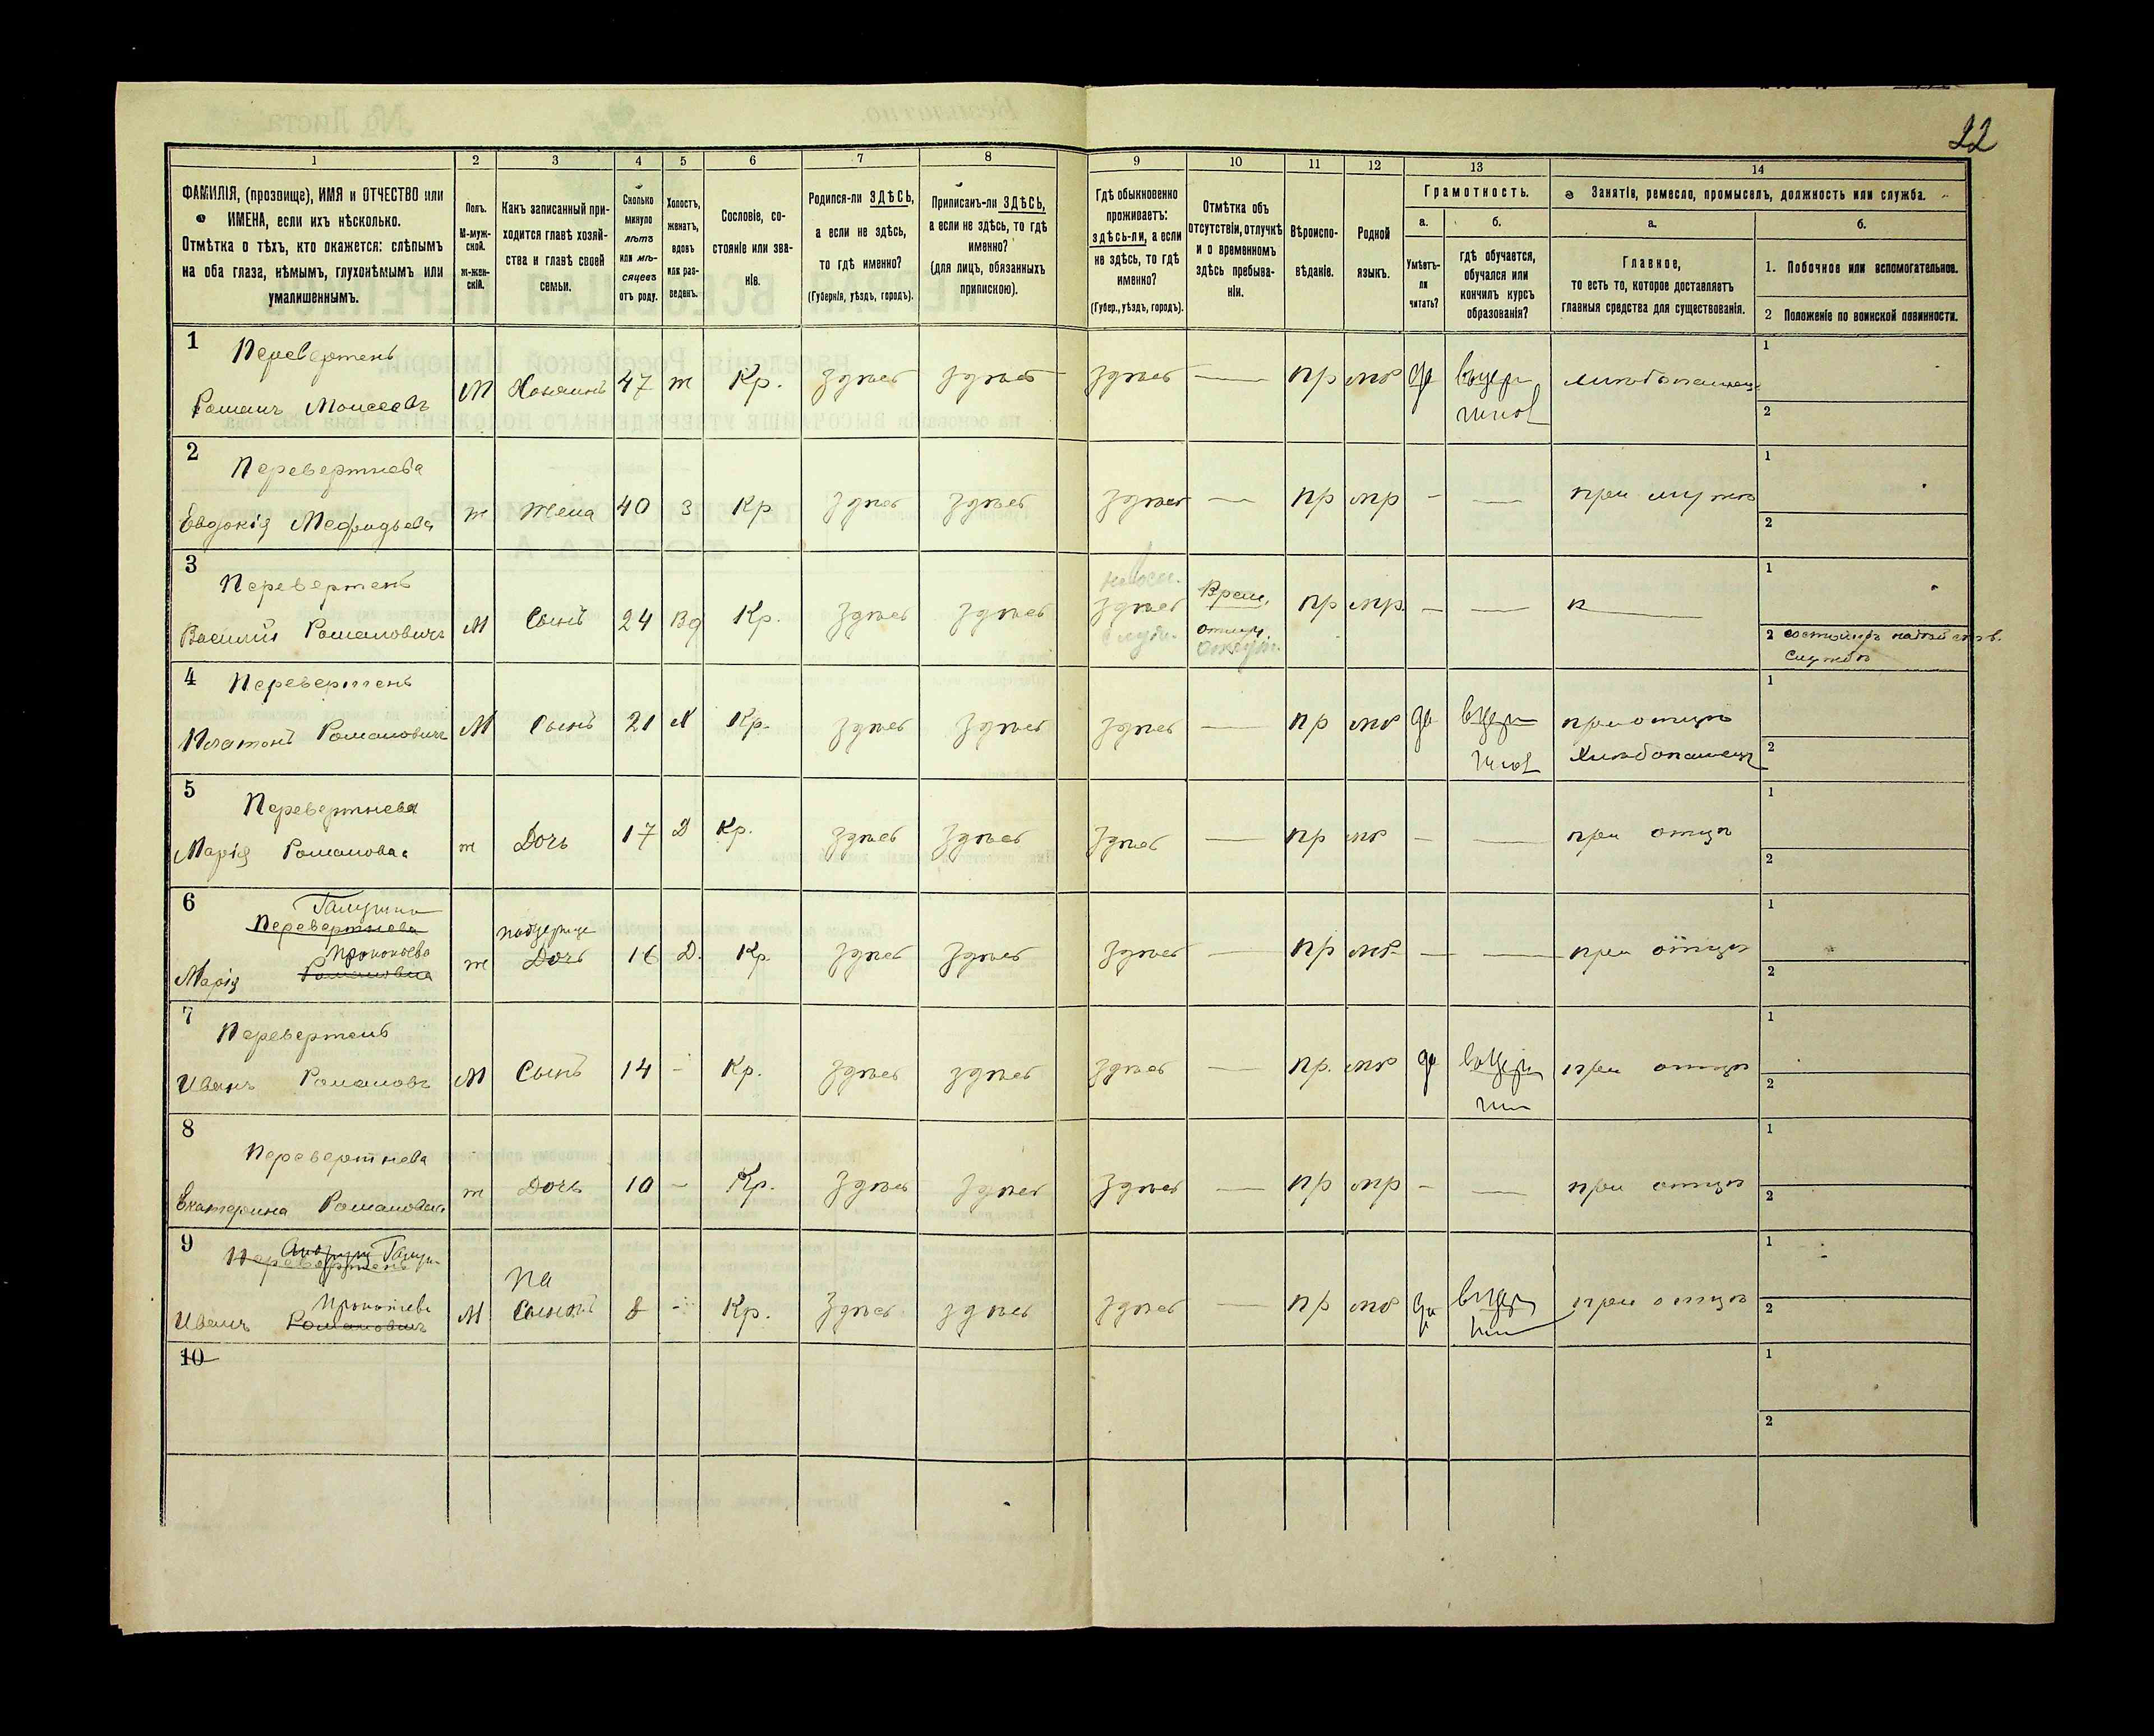 22
1 2 3 4 5 6 7 8 9 10 11 12 13 14
ФАМИЛІЯ, (прозвище), ИМЯ и ОТЧЕСТВО или
ИМЕНА, если ихъ нѣсколько.
Отмѣтка о тѣхъ, кто окажется: слѣпымъ
на оба глаза, нѣмымъ, глухонѣмымъ или
умалишеннымъ.
Полъ.
М-муж-
ской.
Ж-жен-
скій.
Какъ записанный при-
ходится главѣ хозяй-
ства и главѣ своей
семьи.
Сколько
минуло
лѣтъ
или мѣ-
сяцевъ
отъ роду.
Холостъ,
женатъ,
вдовъ
или раз-
веденъ.
Сословіе, со-
стояніе или зва-
ніе.
Родился-ли ЗДѢСЬ,
а если не здѣсь,
то гдѣ именно?
(Губернія, уѣздъ, городъ).
Приписанъ-ли ЗДѢСЬ,
а если не здѣсь, то гдѣ
именно?
(для лицъ, обязанныхъ
припискою).
Гдѣ обыкновенно
проживаетъ:
здѣсь-ли, а если
не здѣсь, то гдѣ
именно?
(Губер., уѣздъ, городъ).
Отмѣтка объ
отсутствіи, отлучкѣ
и о временномъ
здѣсь пребыва-
ніи.
Вѣроиспо-
вѣданіе.
Родной
языкъ.
Грамотность.
а.
Умѣетъ-
ли
читать?
б.
гдѣ обучается,
обучался или
кончилъ курсъ
образованія?
Занятія, ремесло, промыселъ, должность или служба.
а.
Главное,
то есть то, которое доставляетъ
главныя средства для существованія.
б.
1. Побочное или вспомогательное.
2 Положеніе по воинской повинности.
1 Перевертень
Романъ Моисеевъ М Хозяинъ 47 ж Кр. здѣсь здѣсь здѣсь — пр мр да вцерк хлѣбопашецъ
школ
1
2
2 Перевертнева
Евдокія Мефодьева ж Жена 40 З Кр здѣсь здѣсь здѣсь — пр мр — — при мужѣ
1
2
3 Перевертень
Василий Романовичъ М Сынъ 24 Вд Кр. здѣсь здѣсь здѣсь Врем. отлуч. пр мр. — —
1
2 состоитъ на
службѣ
4 Перевертень
Платонъ Романовичъ М Сынъ 21 Х Кр. здѣсь здѣсь здѣсь — пр мр да вцерк при отцѣ
школ хлѣбопашецъ
1
2
5 Перевертнева
Марія Романова ж Дочь 17 Д Кр. здѣсь здѣсь здѣсь — пр мр — — при отцѣ
1
2
6 Галушка
Перевертнева
Прокопьева падчерица
Марія Романовна ж Дочь 16 Д. Кр. здѣсь здѣсь здѣсь — пр мр — — при отцѣ
1
2
7 Перевертень
Иванъ Романовъ М Сынъ 14 - Кр. здѣсь здѣсь здѣсь — пр. мр да вцерк при отцѣ
шк
1
2
8 Перевертнева
Екатерина Романова ж Дочь 10 - Кр. здѣсь здѣсь здѣсь — пр мр — — при отцѣ
1
2
9 Перевертень
Прокопьевъ Па
Иванъ Романовичъ М Сынокъ 8 - Кр. здѣсь здѣсь здѣсь — пр мр да вцерк при отцѣ
шк
1
2
10
1
2